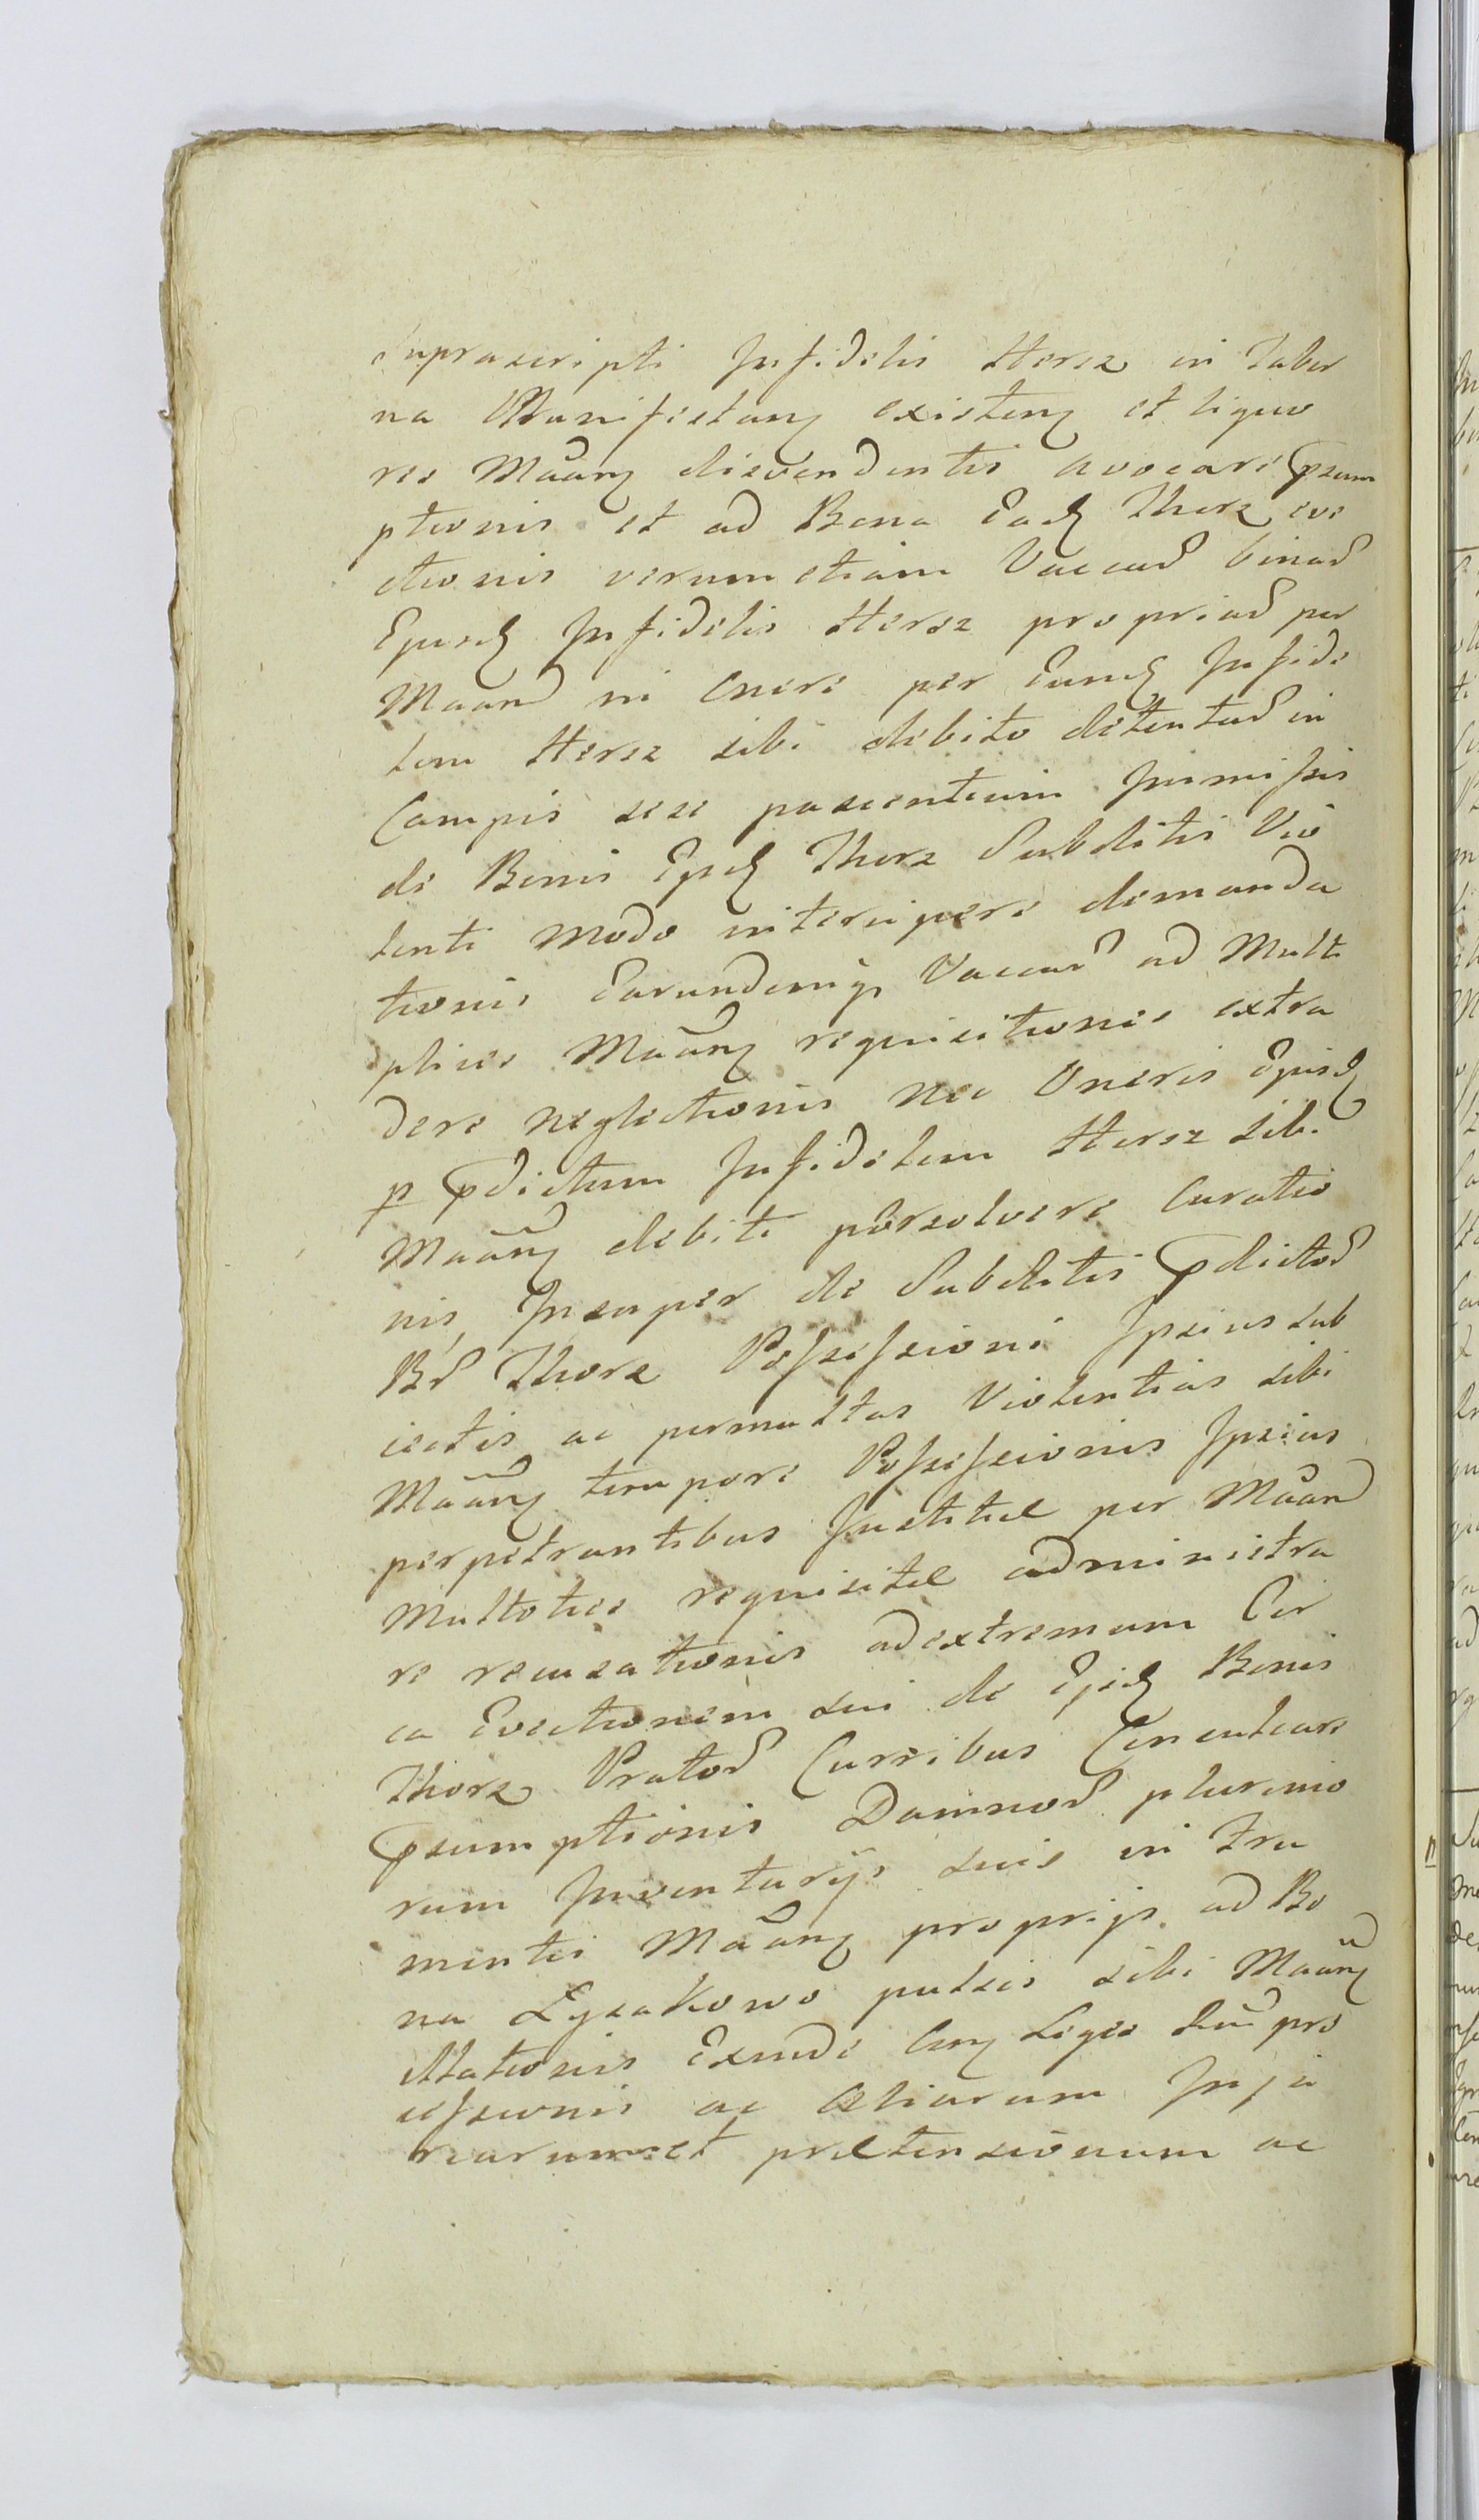 suprascripti Infidelis Hersz in Taber
na Manifestanq existenq et liquo
res Mãanq disvendentis avocare Psum
ptionis et ad Bona Eadq Thorz eve
ctionis verum etiam Vaccas binas
Ejusdq Infidelis Hersz proprias per
Maan in Onere per Eumq Infide
lem Hersz sibi debito detentas in
Campis sese pascentium Immissis
de Bonis Ejusdq Thorz Subditis Vio
lenti modo intercipere demanda
tionis Earundemq Vaccas ad Multi
plices Mãanq requisitiones extra
dere neglectionis nec Oneris Ejusdq
p Pdictum Infidelem Hersz sibi
Mãanq debiti persolvere Curatio
nis, Insuper de Subditis Pdictos
Bs Thorz Possessioni Ipsius sub
iectis ac permultas Violentias sibi
Mãanq tempore Possessionis Ipsius
perpetrantibus Justitiæ per Mãan
Multoties requisitæ administra
re recusationis ad extremum Cir
ca Evectionem sui de Ejusdq Bonis
Thorz Pratos Curribus Conculcare
Psumptionis Damnos plurimo
rum Inventarijs suis in Fru
mentis Mãanq proprijs ad Bo
na Łysakowo pulsis sibi Mãanq
illationis Exinde Cunq Legis Suc̃ pro
cessionis ac Aliarum Inju
riarum et prætensionum ac